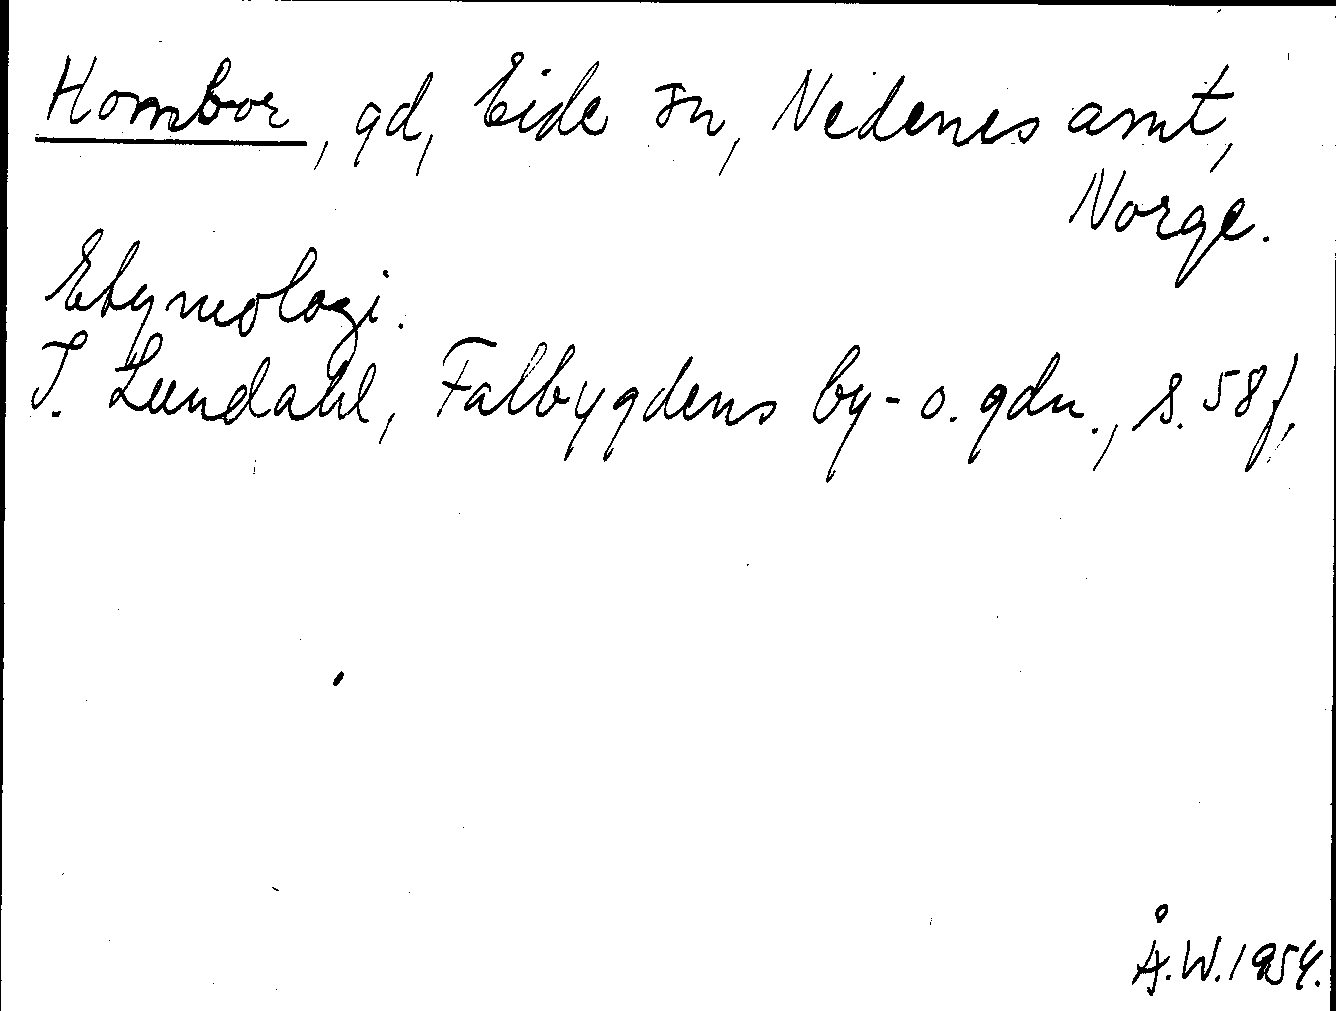 Hombor, gd, Eide sn, Nedenes amt,
Norge.
Etymologi.
I. Lundahl, Falbygdens by- o. gdn., s. 58 f,
Å.W. 1954.